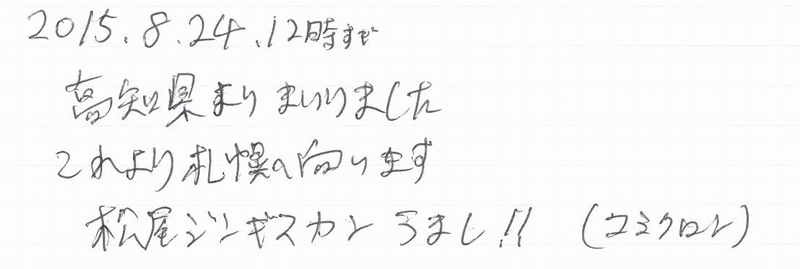 2015.8.24.12時すぎ
高知県よりまいりました
これより札幌へ向います
松尾ジンギスカンうまし!! (コミクロン)